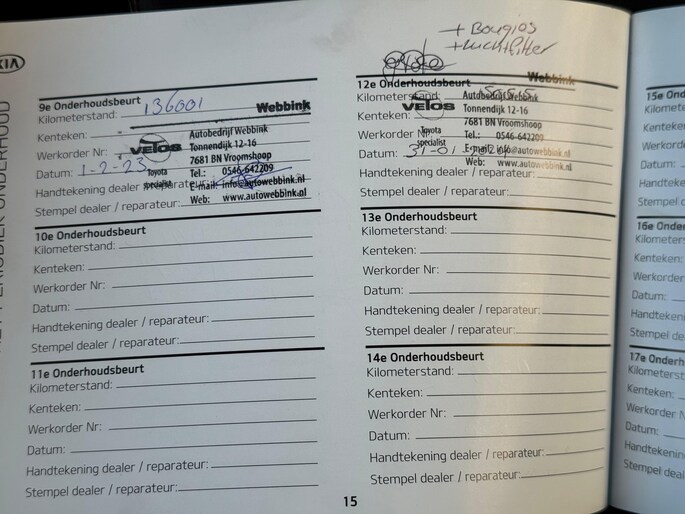 KIA
PERIODIEK ONDERHOUD
9e Onderhoudsbeurt
Kilometerstand: 136001
Kenteken:
Werkorder Nr:
Datum: 1-2-23
Handtekening dealer / reparateur:
Stempel dealer / reparateur:
Webbink
VELOS
Toyota
specialist
Autobedrijf Webbink
Tonnendijk 12-16
7681 BN Vroomshoop
Tel.: 0546-642209
E-mail: info@autowebbink.nl
Web: www.autowebbink.nl
10e Onderhoudsbeurt
Kilometerstand:
Kenteken:
Werkorder Nr:
Datum:
Handtekening dealer / reparateur:
Stempel dealer / reparateur:
11e Onderhoudsbeurt
Kilometerstand:
Kenteken:
Werkorder Nr:
Datum:
Handtekening dealer / reparateur:
Stempel dealer / reparateur:
+ Bougies
+ Luchtfilter
12e Onderhoudsbeurt
Kilometerstand:
Kenteken:
Werkorder Nr:
Datum: 31-01-2024
Handtekening dealer / reparateur:
Stempel dealer / reparateur:
Webbink
VELOS
Toyota
specialist
Autobedrijf Webbink
Tonnendijk 12-16
7681 BN Vroomshoop
Tel.: 0546-642209
E-mail: info@autowebbink.nl
Web: www.autowebbink.nl
13e Onderhoudsbeurt
Kilometerstand:
Kenteken:
Werkorder Nr:
Datum:
Handtekening dealer / reparateur:
Stempel dealer / reparateur:
14e Onderhoudsbeurt
Kilometerstand:
Kenteken:
Werkorder Nr:
Datum:
Handtekening dealer / reparateur:
Stempel dealer / reparateur:
15
15e
Kenteken:
Werkorder
Datum:
Stempel
16e
Kenteken:
Werkorder
Datum:
Stempel
17e
Kenteken:
Werkorder
Datum:
Stempel